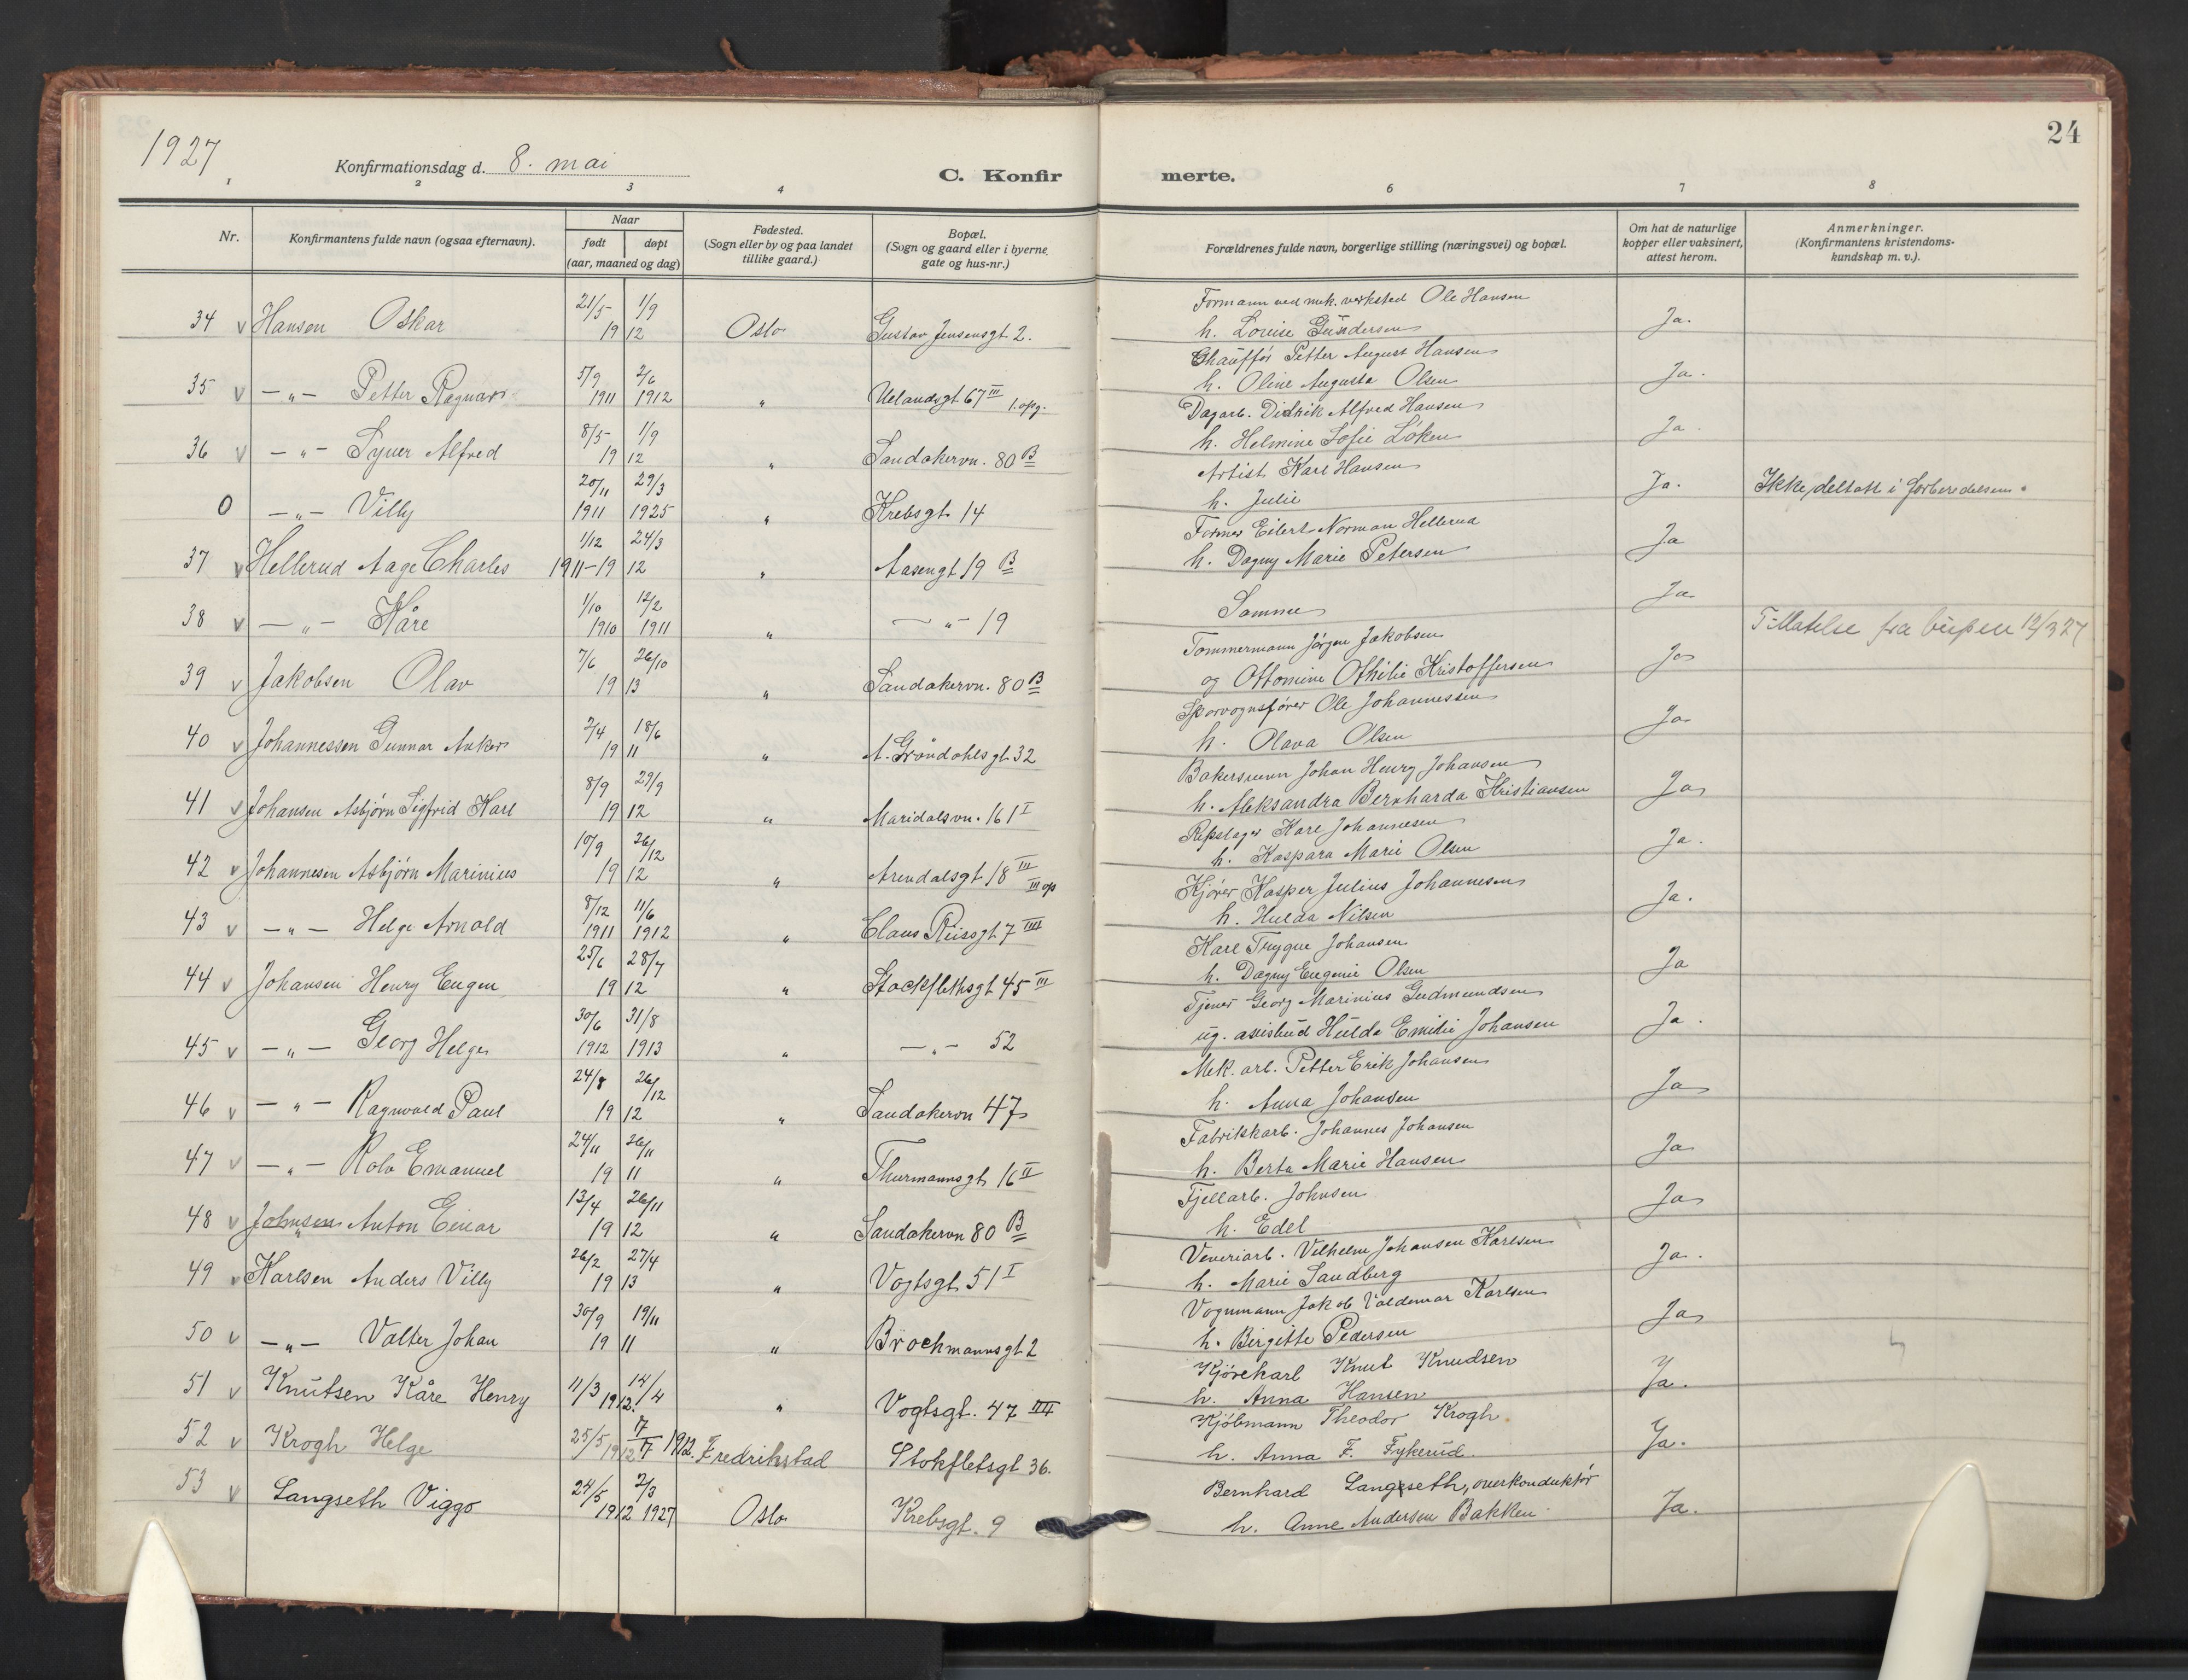 1927
24
Konfirmationsdag d. 8. mai
C. Konfirmerte.
1 2 3 4 6 7 8
Nr.
Konfirmantens fulde navn (ogsaa efternavn).
Naar
født døpt
(aar, maaned og dag)
Fødested.
(Sogn eller by og paa landet
tillike gaard.)
Bopæl.
(Sogn og gaard eller i byerne
gate og hus-nr.)
Forældrenes fulde navn, borgerlige stilling (næringsvei) og bopæl.
Om hat de naturlige
kopper eller vaksinert,
attest herom.
Anmerkninger.
(Konfirmantens kristendoms-
kundskap m. v.).
21/5 1/9 Formann ved mek. verksted Ole Hansen
34 v Hansen Oskar 19 12 Oslo Gustav Jensensgt 2. h. Louise Gundersen Ja.
5/9 2/6 Chauffør Petter August Hansen
35 v —„— Petter Ragnar 1911 1912 „ Uelandsgt 67 III 1. opg. h. Oline Augusta Olsen Ja.
8/5 1/9 Dagarb. Didrik Alfred Hansen
36 v —„— Syver Alfred 19 12 „ Sandakervn. 80 B h. Helmine Sofie Løken Ja.
20/11 29/3 Artist Karl Hansen
0 —„— Villy 1911 1925 „ Krebsgt 14 h. Julie Ja. Ikke deltatt i forberedelsen.
1/12 24/3 Former Eilert Norman Hellerud
37 v Hellerud Aage Charles 1911-19 12 „ Aasengt 19 B h. Dagny Marie Petersen Ja
1/10 12/2
38 v —„— Kåre 1910 1911 „ —„— 19 Samme Ja Tillatelse fra bispen 12/3 27
7/6 26/10 Tømmermann Jørgen Jakobsen
39 v Jakobsen Olav 19 13 „ Sandakervn. 80 B og Ottomine Othilie Kristoffersen Ja
2/4 18/6 Sporvognsfører Ole Johannessen
40 v Johannessen Gunnar Anker 19 11 „ A. Grøndahlsgt 32 h. Olava Olsen Ja
8/9 29/9 Bakersvenn Johan Henry Johansen
41 v Johansen Asbjørn Sigfrid Karl 19 12 „ Maridalsvn. 161 I h. Aleksandra Bernharda Kristiansen Ja
10/9 26/12 Repslager Karl Johannesen
42 v Johannesen Asbjørn Marinius 19 12 „ Arendalsgt 18 III III op h. Kaspara Marie Olsen Ja.
8/12 11/6 Kjører Kasper Julius Johannesen
43 v —„— Helge Arnold 1911 1912 „ Claus Riisgt 7 IIII h. Hulda Nilsen Ja.
25/6 28/7 Karl Trygve Johansen
44 v Johansen Henry Eugen 19 12 „ Stockflethsgt 45 III h. Dagny Eugenie Olsen Ja
30/6 31/8 Tjener Georg Marinius Gudmundsen
45 v —„— Georg Helge 1912 1913 „ —„— 52 ug. avisbud Hulda Emilie Johansen Ja.
24/8 26/12 Mek. arb. Petter Erik Johansen
46 v —„— Ragnvald Paul 19 12 „ Sandakervn 47 h. Anna Johansen Ja
24/11 26/11 Fabrikkarb. Johannes Johansen
47 v —„— Rolv Emanuel 19 11 „ Thurmannsgt 16 II h. Berta Marie Hansen Ja
13/4 26/11 Fjellarb. Johnsen
48 v Johnsen Anton Einar 19 12 „ Sandakervn 80 B h. Edel Ja
26/2 27/4 Veveriarb. Vilhelm Johansen Karlsen
49 v Karlsen Anders Villy 19 13 „ Vogtsgt 51 I h. Marie Sandberg Ja.
30/9 19/11 Vognmann Jakob Valdemar Karlsen
50 v —„— Valter Johan 19 11 „ Brochmannsgt 2 h. Birgitte Pedersen Ja
Kjørekarl Knut Knudsen
51 v Knutsen Kåre Henry 11/3 1912. 14/4 „ Vogtsgt. 47 IIII h. Anna Hansen Ja.
Kjøbmann Theodor Krogh.
52 v Krogh Helge 25/5 1912 7/7 1912. Fredrikstad Stokfletsgt 36. h. Anna F. Fykerud. Ja.
24/5 2/3 Bernhard Langseth, overkonduktør
53 v Langseth Viggo 1912 1927 Oslo Krebsgt. 9 h. Anne Andersen Bakken. Ja.